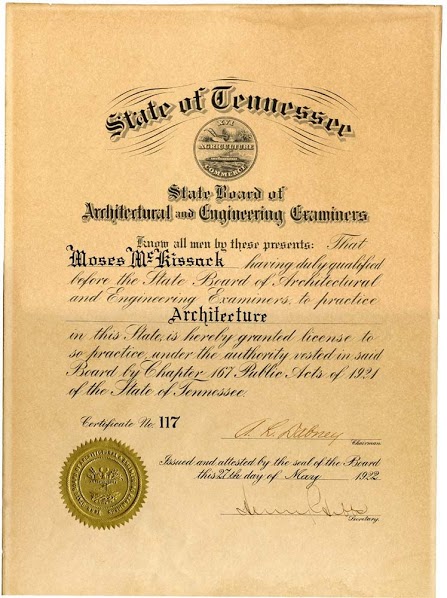 State of Tennessee
XVI
AGRICULTURE
COMMERCE
State Board of
Architectural and Engineering Examiners
Know all men by these presents: That
Moses McKissack having duly qualified
before the State Board of Architectural
and Engineering Examiners, to practice
Architecture
in this State, is hereby granted license to
so practice, under the authority vested in said
Board by Chapter 167 Public Acts of 1921
of the State of Tennessee.
Certificate No. 117
Chairman
Issued and attested by the seal of the Board
this 27th day of May 1922
Secretary.